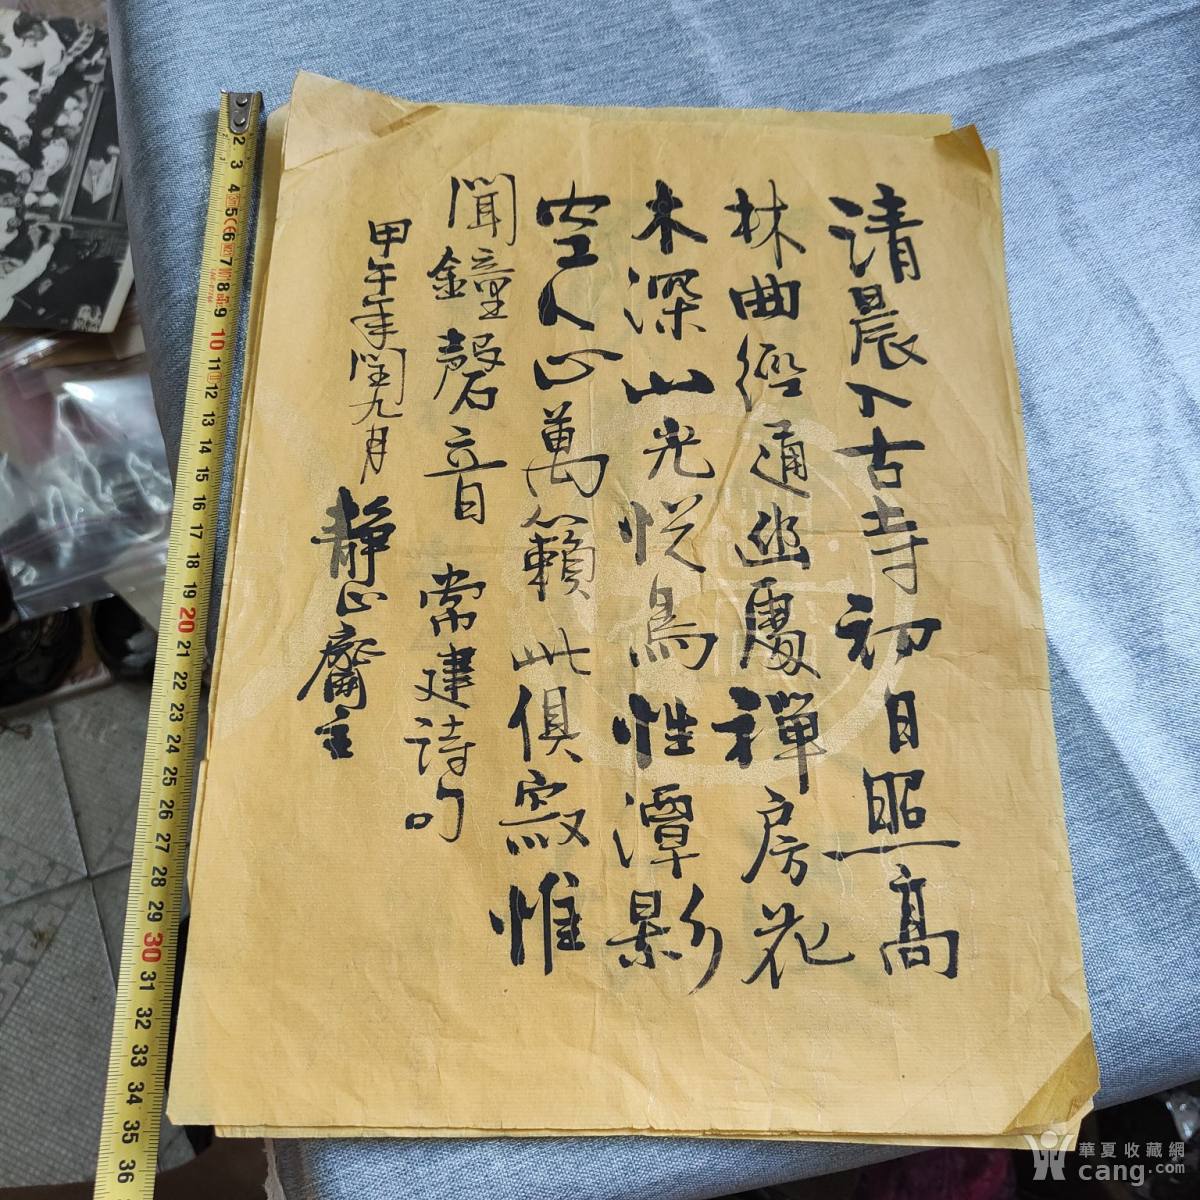 清晨入古寺初日照高
林曲徑通幽處禪房花
木深山光悅鳥性潭影
空人心萬籟此俱寂惟
聞鐘磬音 常建詩句
甲午年閏九月 靜心齋主
2 3 4 5 6 7 8 9 10 11 12 13 14 15 16 17 18 19 20 21 22 23 24 25 26 27 28 29 30 31 32 33 34 35 36
華夏收藏網
cang.com